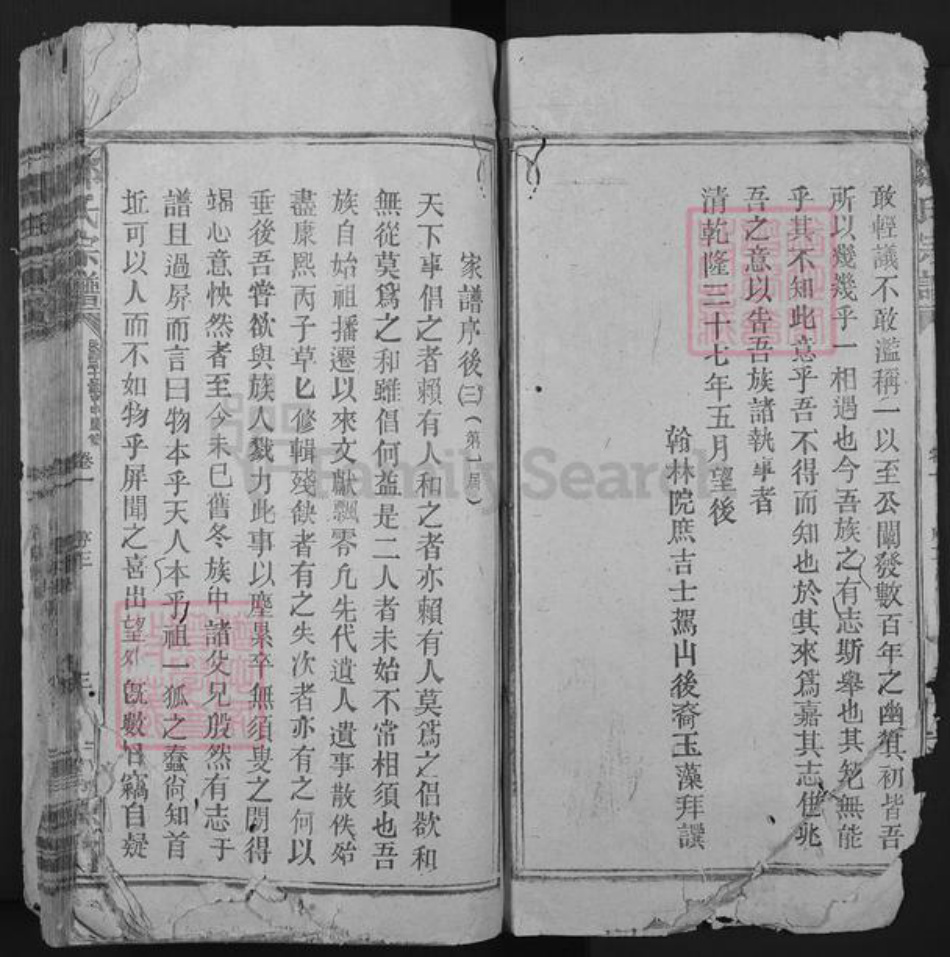 敢輕議不敢濫稱一以至公闡發數百年之幽質其初皆吾
所以幾幾乎一相過也今吾族之有志斯舉也其能無能
乎其不知此意乎吾不得而知也於其來爲嘉其志世兆
吾之意以告吾族諸執事者
清乾隆三十七年五月望後
翰林院庶吉士駕山後裔玉藻拜譔
家譜序後㈢(第七届)
天下事倡之者賴有人和之者亦賴有人莫爲之倡欲和
無從莫爲之和雖倡何益是二人者未始不常相須也吾
族自始祖播遷以來文獻飄零凡先代遺人遺事散佚殆
盡康熙丙子草匕修輯殘缺者有之失次者亦有之何以
垂後吾嘗欲與族人戮力此事以塵累卒無須臾之閒得
竭心意怏然者至今未已舊冬族中諸父兄殷然有志于
譜且過屏而言曰物本乎天人本乎祖一狐之蠢尙知首
坵可以人而不如物乎屏聞之喜出望外旣數日竊自疑
氏宗譜
卷一
序三
三
FamilySearch